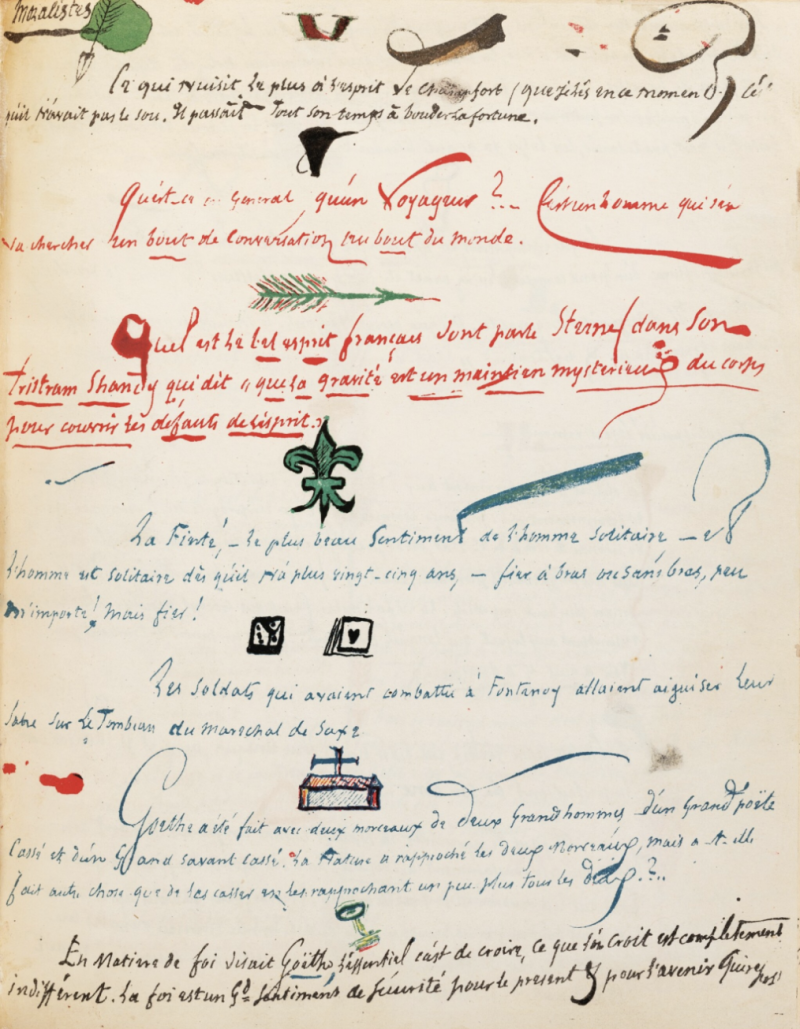 Moralistes
Ce qui nuisit le plus à l'esprit de Chamfort (que je lis en ce moment) c'é
qu'il n'avait pas le sou. Il passait tout son temps à bouder la fortune.
Qu'est-ce en general qu'un Voyageur ?... C'est un homme qui s'en
va chercher un bout de conversation au bout du monde.
Quel est le bel esprit français dont parle Sterne (dans son
Tristram Shandy qui dit « que la gravité est un maintien mysterieux du corps
pour couvrir les défauts de l'esprit. »
La Fierté, — le plus beau sentiment de l'homme solitaire — et
l'homme est solitaire dès qu'il n'a plus vingt-cinq ans, — fier à bras ou sans bras, peu
m'importe ! Mais fier !
Les soldats qui avaient combattu à Fontenoy allaient aiguiser leur
sabre sur le Tombeau du marechal de Saxe
Goethe a été fait avec deux morceaux de deux Grands hommes d'un Grand poëte
cassé et d'un Grand savant cassé. La Nature a rapproché les deux morceaux, mais a-t-elle
fait autre chose que de les casser en les rapprochant un peu plus tous les deux ?..
En Matiere de foi disait Goëthe, l'essentiel c'est de croire, ce que l'on croit est completement
indifférent. La foi est un Gd sentiment de sécurité pour le present & pour l'avenir